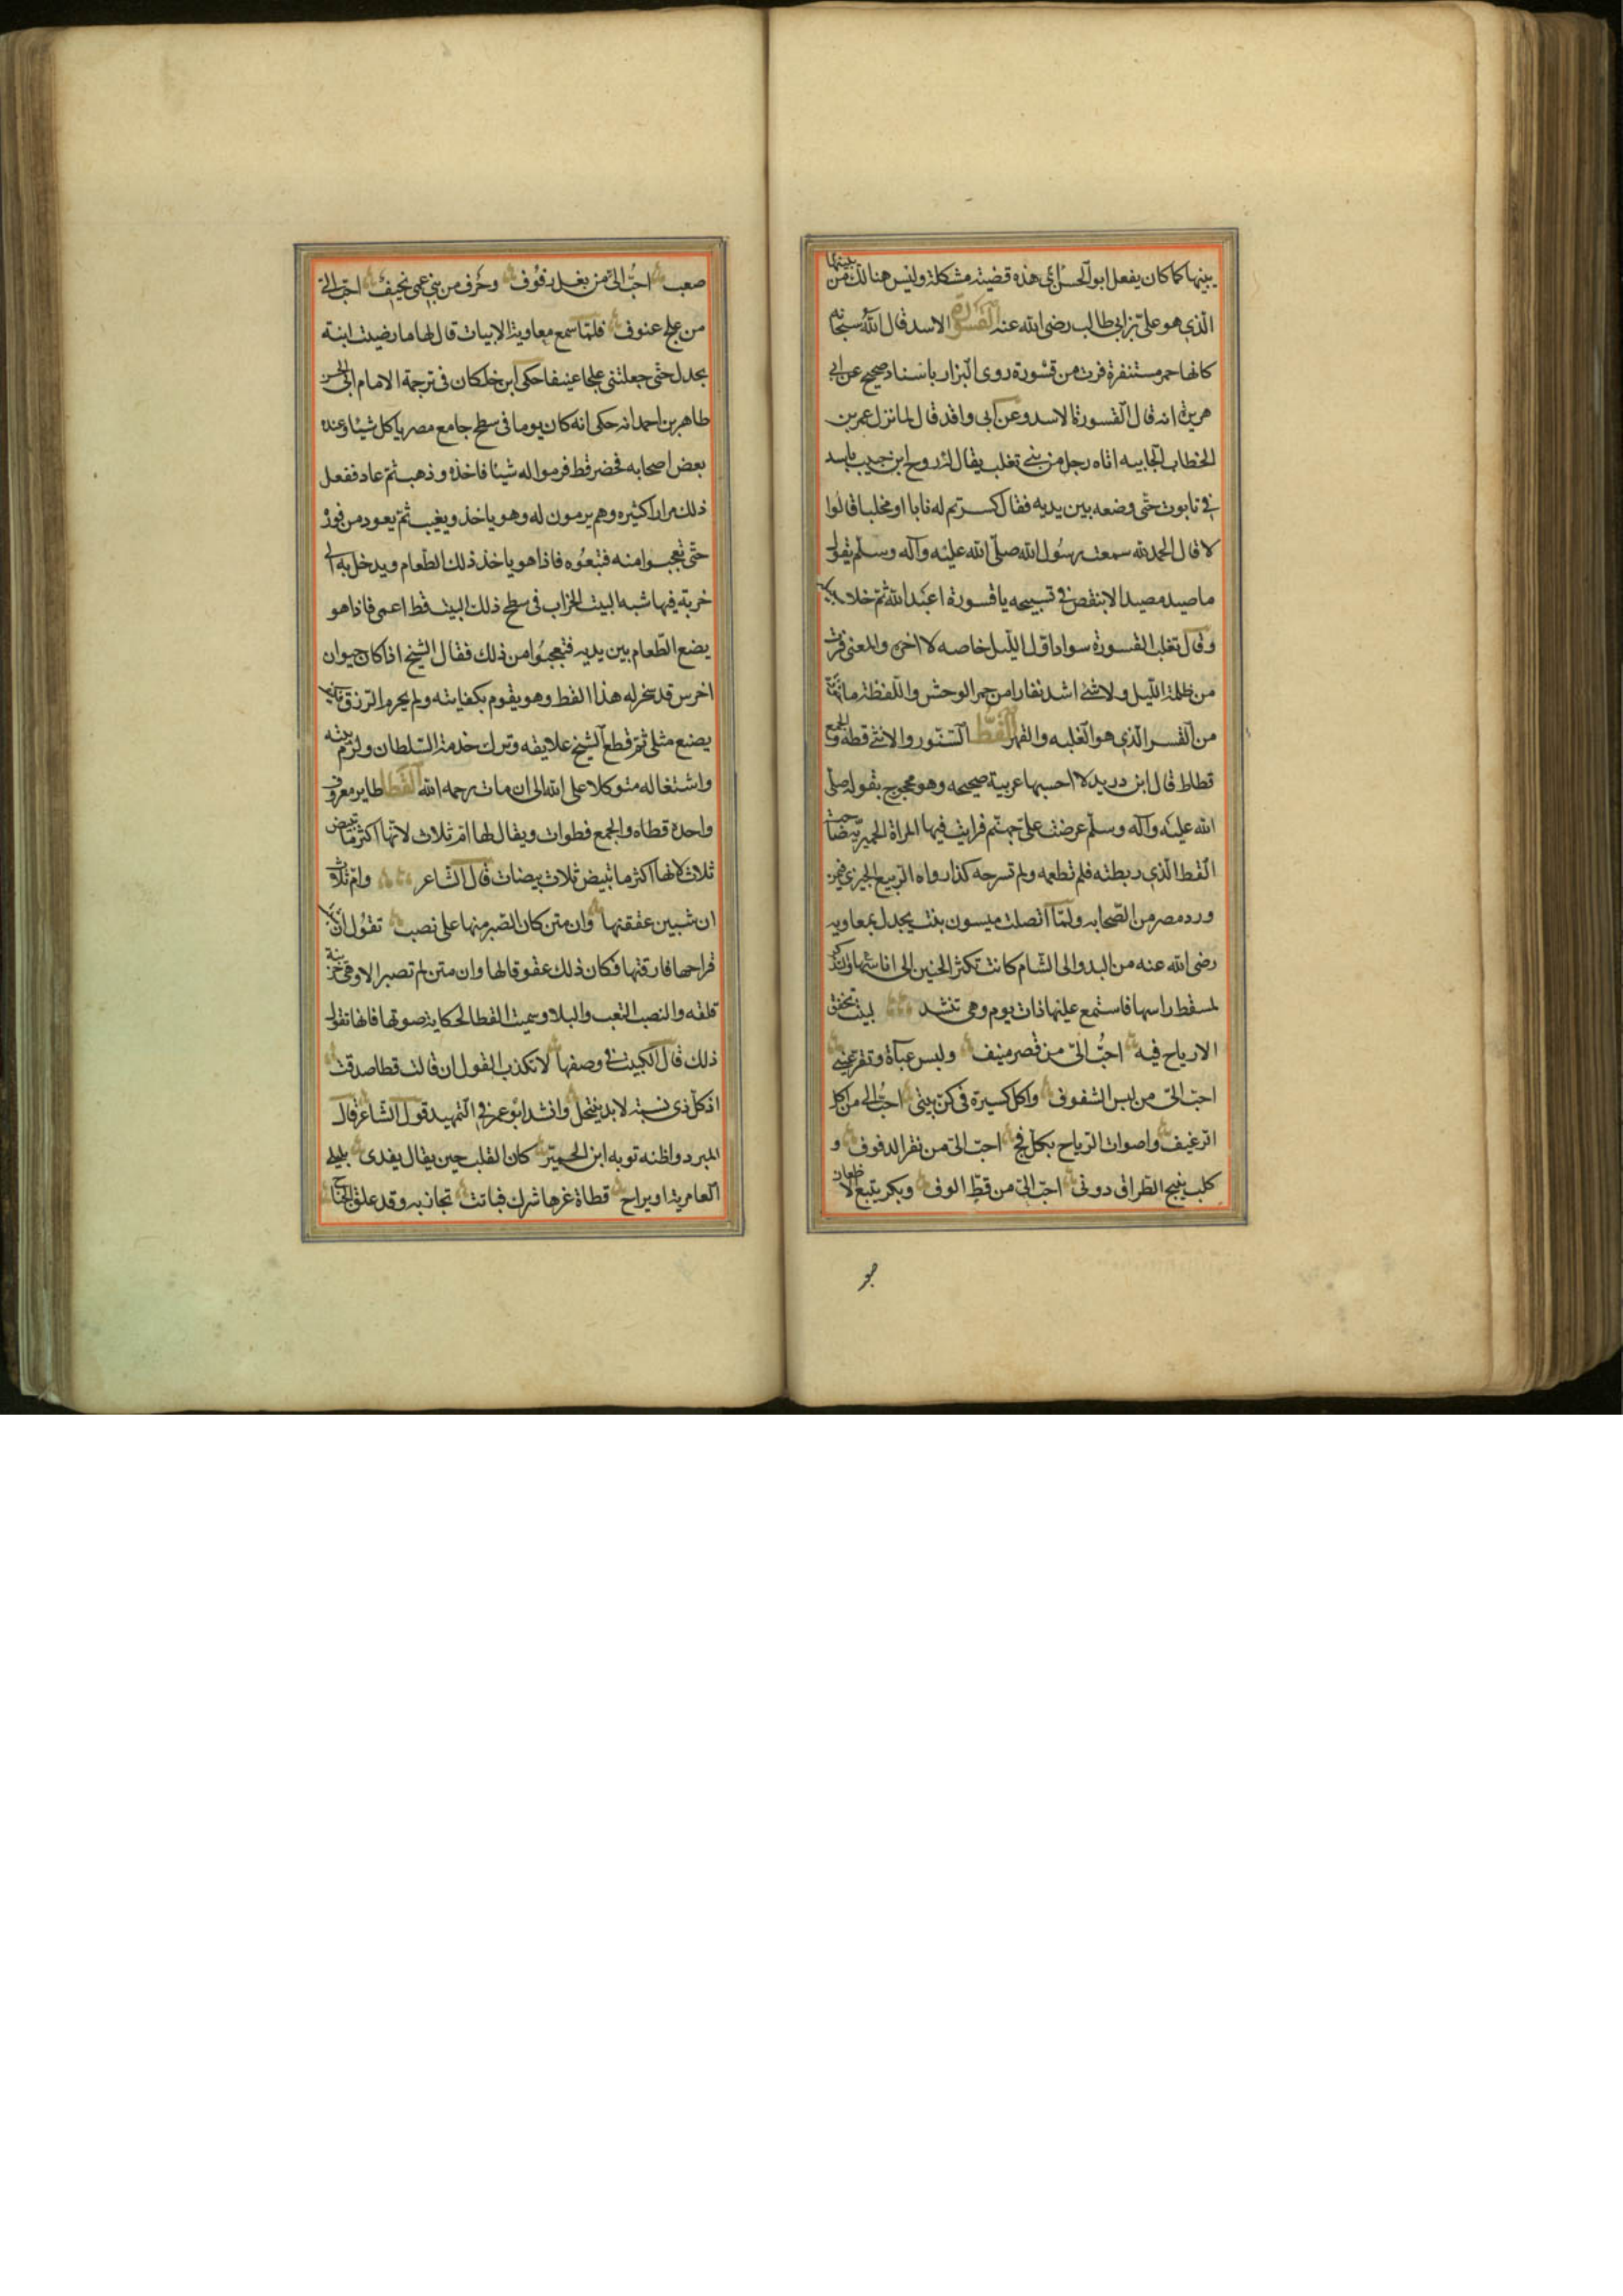 يبينها كما كان يفعل ابو الحسن اي هذه قضية مشكلة وليس هنالك من يبينها
الذي هو علي بن ابي طالب رضى الله عنه القسورة الاسد قال الله سبحانه
كانها حمر مستنفرة فرت من قسورة روى البزار باسناد صحيح عن ابي
هريرة انه قال القسورة الاسد وعن ابي واقد قال لما نزل عمر بن
الخطاب الجابيه اتاه رجل من بنى تغلب يقال له روح ابن حبيب باسد
في تابوت حتى وضعه بين يديه فقال كسرتم له نابا او مخلبا قالوا
لا قال الحمد لله سمعت رسول الله صلى الله عليه وآله وسلم يقول
ما صيد مصيد الا بنقص في تسبيحه يا قسورة اعبد الله ثم خلا سبيله
وقال تغلب القسورة سواد اول الليل خاصه لا اخره والمعنى فرت
من ظلمة الليل ولا شئ اشد نفارا من حمر الوحش واللفظة ماخوذة
من القسر الذي هو الغلبه والقهر القط السنور والانثى قطة والجمع
قطاط قال ابن دريد لا احسبها عربية صحيحه وهو محجوج بقوله صلى
الله عليه وآله وسلم عرضت على جهنم فرايت فيها المراة الحميرية صاحبت
القط الذي ربطته فلم تطعمه ولم تسرحه كذا رواه الربيع الجيزي فيمن
ورد مصر من الصحابه ولما اتصلت ميسون بنت بجدل بمعاويه
رضى الله عنه من البدو الى الشام كانت تكثر الحنين الى اناسها والتذكر
لمسقط راسها فاستمع عليها ذات يوم وهى تنشد لبيت تخفق
الارياح فيه احبُّ الىّ من قصر منيف ولبس عباة وتقر عيني
احبّ الىّ من لبس الشفوف واكل كسيرة فى كن بيتى احبّ الى من اكل
الرغيف واصوات الرياح بكل فج احبّ الىّ من نقر الدفوف و
كلب ينبح الطراق دونى احبّ الىّ من قطّ الوف وبكر يتبع الاظعان
صعب
صعب احبّ الىّ من بغل زفوف وخرف من بني عمى نحيف احبّ الىّ
من علج عنوف فلما سمع معاوية الابيات قال لها ما رضيت ابنة
بجدل حتى جعلتنى علجا عنيفا حكى ابن خلكان فى ترجمة الامام ابى الحسن
طاهر بن احمد انه حكى انه كان يوما فى سطح جامع مصر ياكل شيئا وعنده
بعض اصحابه فحضر قط فرموا له شيئا فاخذه وذهب ثم عاد ففعل
ذلك مرارا كثيره وهم يرمون له وهو ياخذ ويغيب ثم يعود من فوره
حتى تعجبوا منه فتبعوه فاذا هو ياخذ ذلك الطعام ويدخل به الى
خربة فيها شبه البيت الخراب فى سطح ذلك البيت قط اعمى فاذا هو
يضع الطعام بين يديه فتعجبوا من ذلك فقال الشيخ اذا كان حيوان
اخرس قد سخر له هذا القط وهو يقوم بكفايته ولم يحرم الرزق فكيف
يضيع مثلى ثم قطع الشيخ علايقه وترك خدمة السلطان ولزم بيته
واشتغاله متوكلا على الله الى ان مات رحمه الله القطا طاير معروف
واحده قطاه والجمع قطوات ويقال لها ام ثلاث لانها اكثر ما تبيض
ثلاث لانها اكثر ما تبيض ثلاث بيضات قال الشاعر وام ثلاث
ان شبين عققنها وان متن كان الصبر منها على نصب تقول ان شب
فراحها فارقتها فكان ذلك عقوقا لها وان متن لم تصبر الا وهى حزينة
قلقه والنصب التعب والبلا وسميت القطا لحكاية صوتها فانها تقول
ذلك قال الكميت فى وصفها لا تكذب القول ان قالت قطا صدقت
اذ كل ذى نسبة لا بد ينتحل وانشد ابو عمر في التمهيد قول الشاعر قال
المبرد واظنه توبه ابن الحمير كان القلب حين يقال يغدى بليلى
العامرية او يراح قطاة غرها شرك فباتت تجاذبه وقد علق الجناح